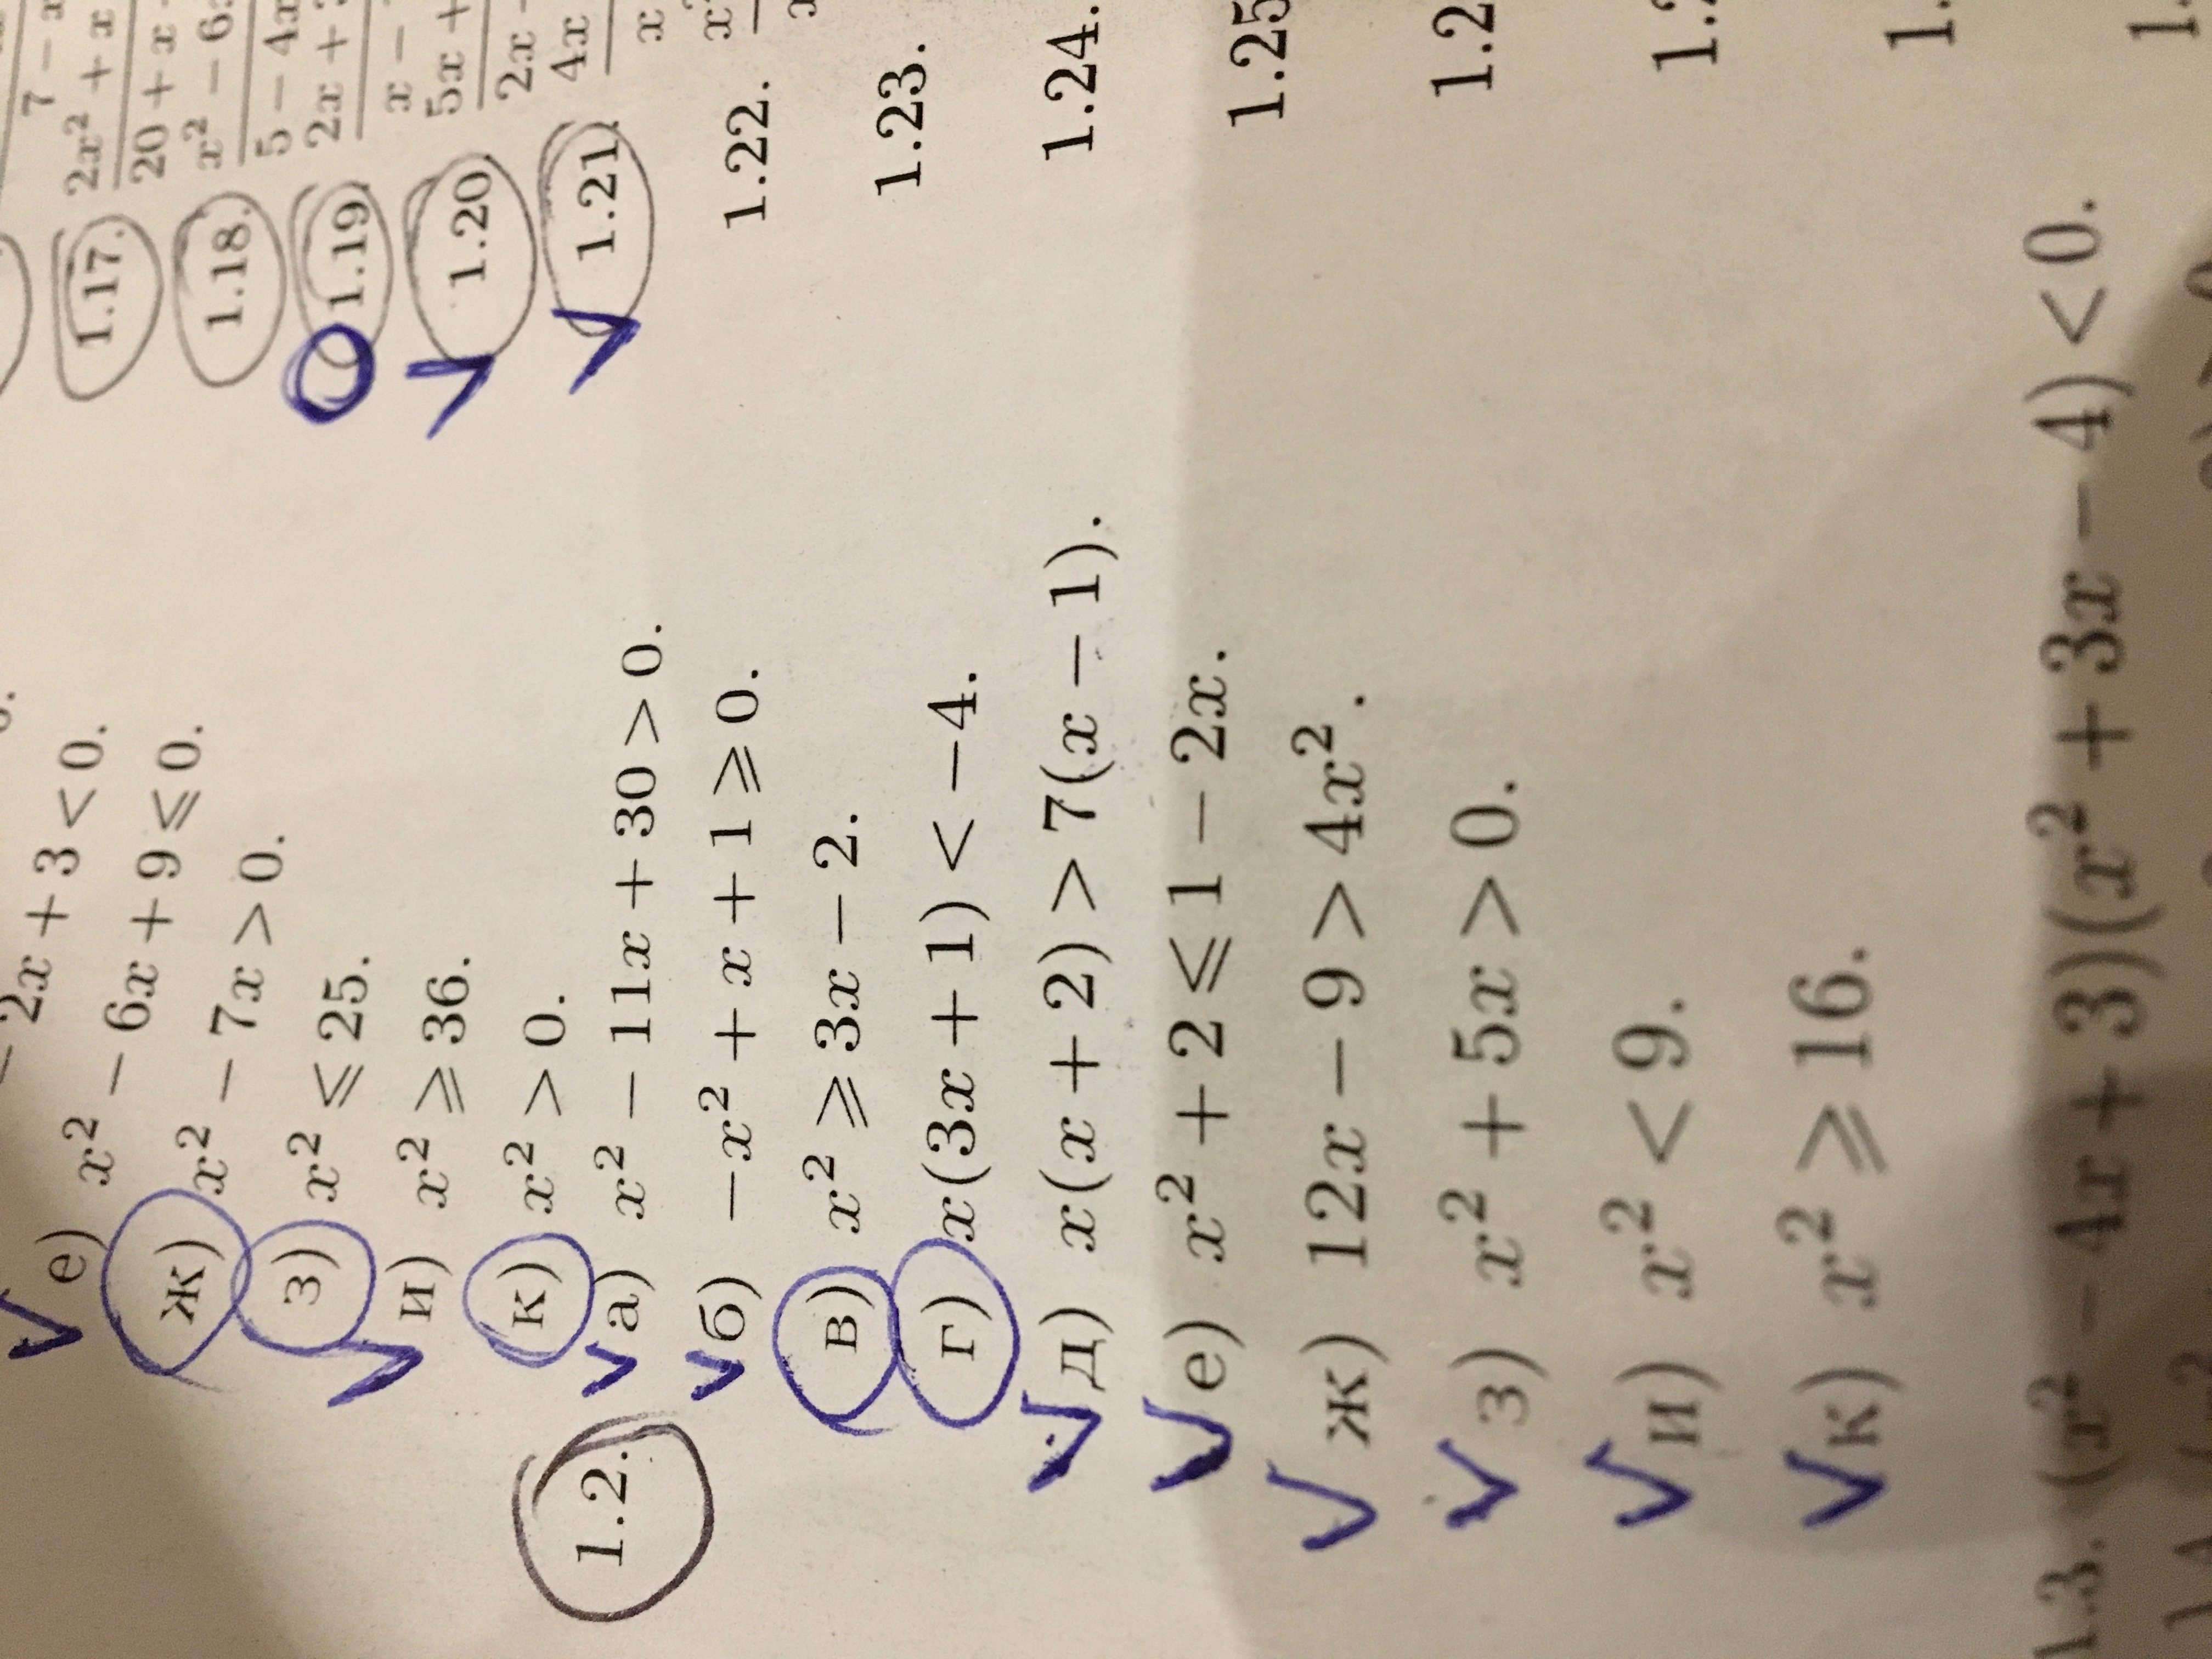 − 2x + 3 < 0.
е) x² − 6x + 9 ⩽ 0.
ж) x² − 7x > 0.
з) x² ⩽ 25.
и) x² ⩾ 36.
к) x² > 0.
1.2. а) x² − 11x + 30 > 0.
б) −x² + x + 1 ⩾ 0.
в) x² ⩾ 3x − 2.
г) x(3x + 1) < −4.
д) x(x + 2) > 7(x − 1).
е) x² + 2 ⩽ 1 − 2x.
ж) 12x − 9 > 4x².
з) x² + 5x > 0.
и) x² < 9.
к) x² ⩾ 16.
1.3. (x² − 4x + 3)(x² + 3x − 4) < 0.
7 − x
1.17. 2x² + x
20 + x
1.18. x² − 6
5 − 4x
1.19. 2x +
x −
1.20. 5x +
2x
1.21. 4x
x
1.22. x
1.23.
1.24.
1.25
1.2
1.
1.